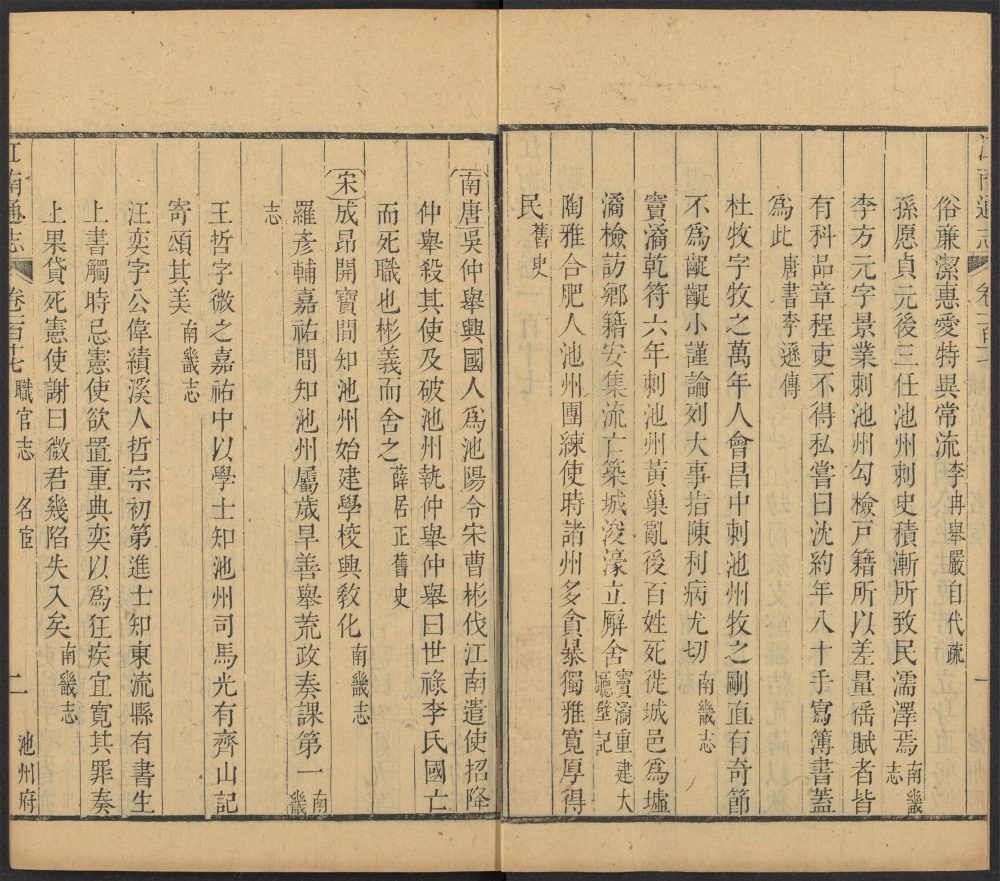 俗亷潔惠愛特異常流李冉舉嚴自代疏
孫愿貞元後三任池州刺史積漸所致民濡澤焉南畿志
李方元字景業刺池州勾檢戸籍所以差量徭賦者皆
有科品章程吏不得私嘗曰沈約年八十手寫簿書蓋
爲此唐書李遜傳
杜牧字牧之萬年人會昌中刺池州牧之剛直有奇節
不爲齪齪小謹論列大事指陳利病尤切南畿志
竇潏乾符六年刺池州黃巢亂後百姓死徙城邑爲墟
潏檢訪鄉籍安集流亡築城浚濠立廨舍竇潏重建大廳壁記
陶雅合肥人池州團練使時諸州多貪暴獨雅寛厚得
民舊史
南唐吳仲舉興國人爲池陽令宋曹彬伐江南遣使招降
仲舉殺其使及破池州執仲舉仲舉曰世祿李氏國亡
而死職也彬義而舍之薛居正舊史
宋成昂開寶間知池州始建學校興敎化南畿志
羅彥輔嘉祐間知池州屬歲旱善舉荒政奏課第一南畿
志
王哲字微之嘉祐中以學士知池州司馬光有齊山記
寄頌其美南畿志
汪奕字公偉績溪人哲宗初第進士知東流縣有書生
上書觸時忌憲使欲置重典奕以爲狂疾宜寬其罪奏
上果貸死憲使謝曰微君幾陷失入矣南畿志
江南通志 卷一百十七 職官志 名宦 二 池州府